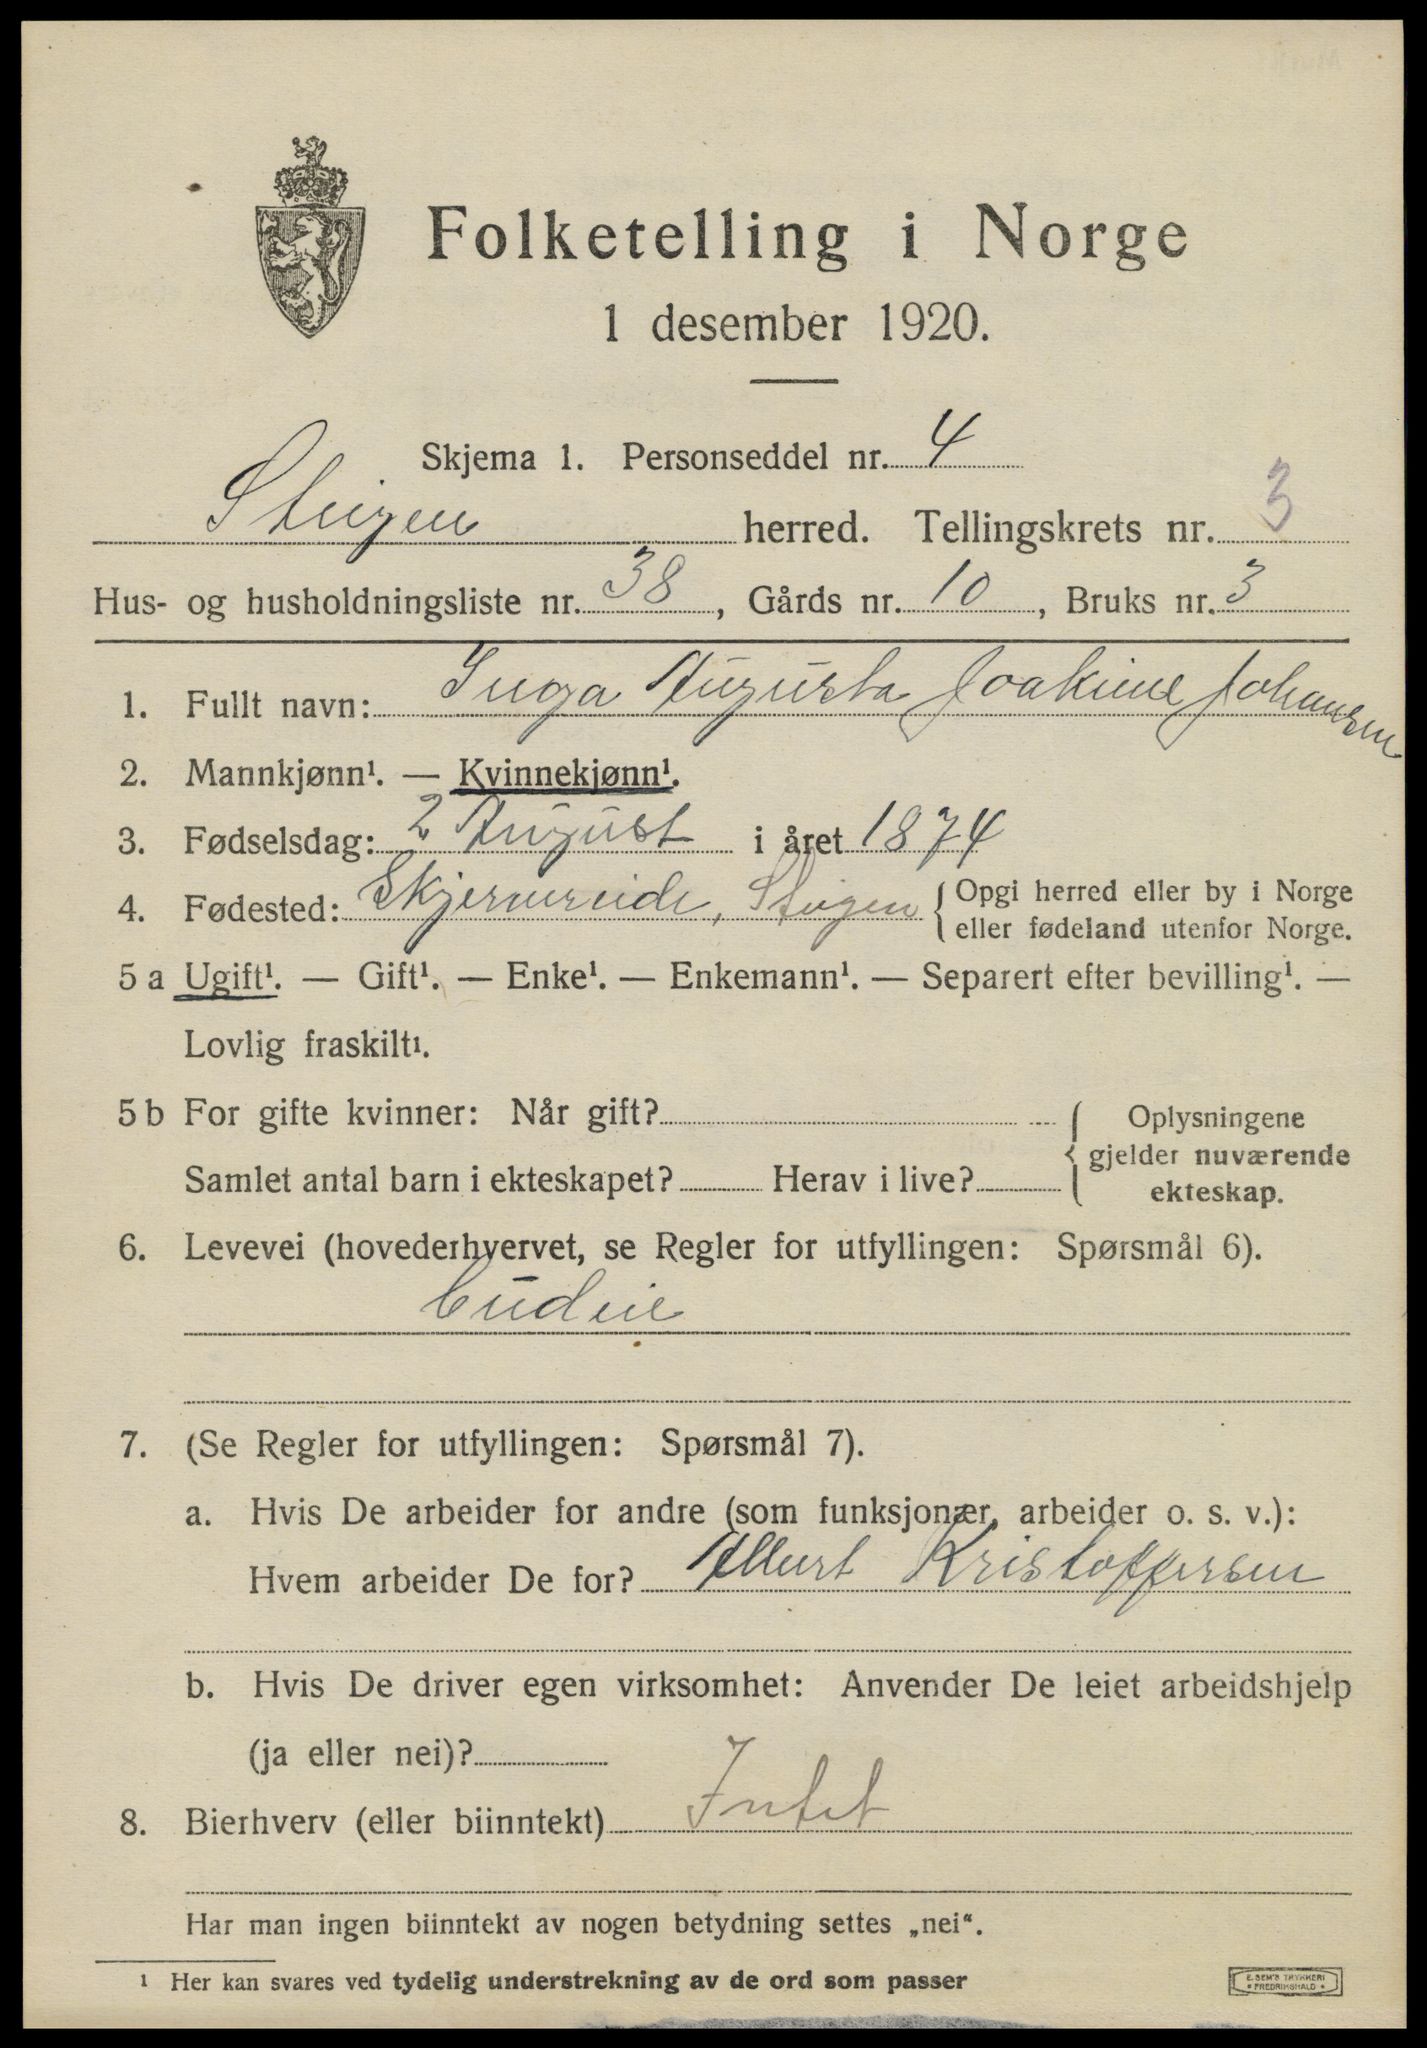 Folketelling i Norge
1 desember 1920.
Skjema 1. Personseddel nr. 4
Steigen herred. Tellingskrets nr. 3
Hus- og husholdningsliste nr. 38, Gårds nr. 10, Bruks nr. 3
1. Fullt navn: Inga Augusta Joakime Johansen
2. Mannkjønn¹. — Kvinnekjønn¹.
3. Fødselsdag: 2 August i året 1874
4. Fødested: Steigen { Opgi herred eller by i Norge
eller fødeland utenfor Norge.
5 a Ugift¹. — Gift¹. — Enke¹. — Enkemann¹. — Separert efter bevilling¹. —
Lovlig fraskilt¹.
5 b For gifte kvinner: Når gift? { Oplysningene
gjelder nuværende
Samlet antal barn i ekteskapet? Herav i live? ekteskap.
6. Levevei (hovederhvervet, se Regler for utfyllingen: Spørsmål 6).
Budeie
7. (Se Regler for utfyllingen: Spørsmål 7).
a. Hvis De arbeider for andre (som funksjonær, arbeider o. s. v.):
Hvem arbeider De for? Albert Kristoffersen
b. Hvis De driver egen virksomhet: Anvender De leiet arbeidshjelp
(ja eller nei)?
8. Bierhverv (eller biinntekt) Intet
Har man ingen biinntekt av nogen betydning settes „nei“.
¹ Her kan svares ved tydelig understrekning av de ord som passer
E. SEM'S TRYKKERI
FREDRIKSHALD